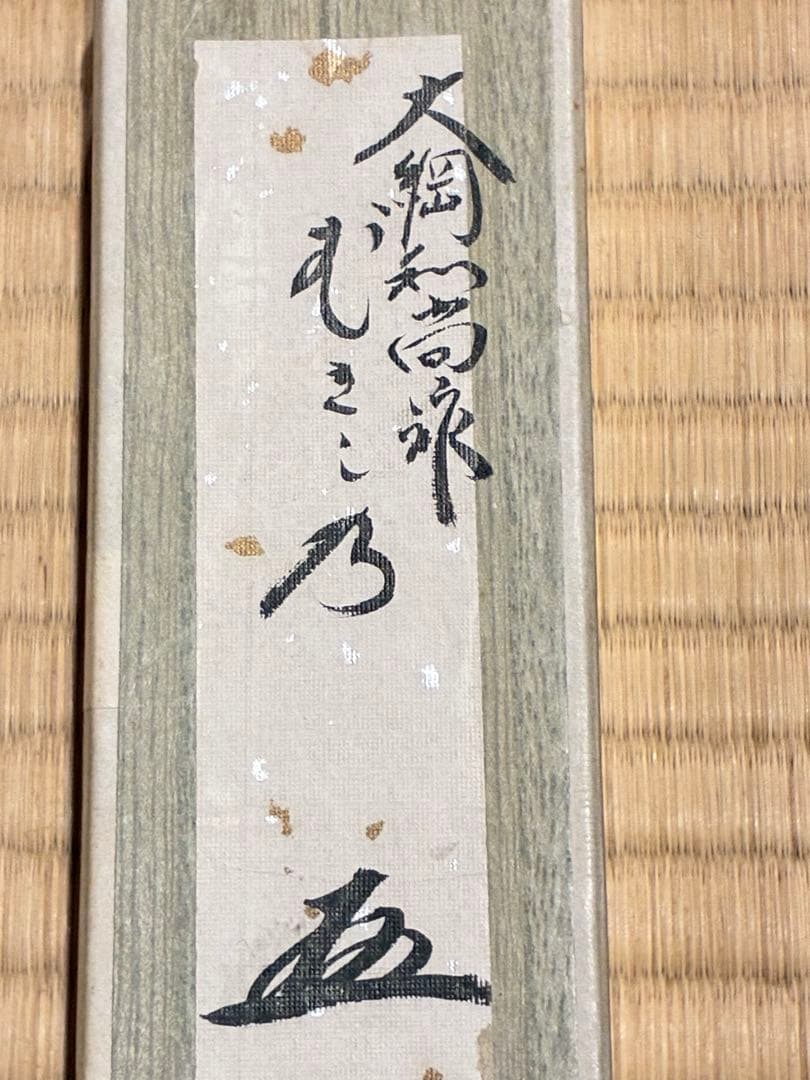 大綱和尚作
むさし乃